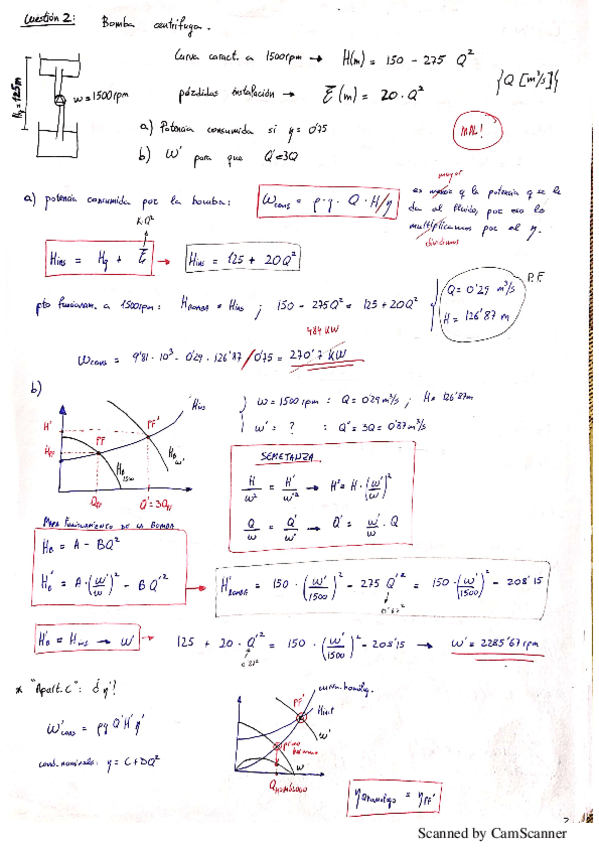 Cuestión 2: Bomba centrífuga.
Curva caract. a 1500rpm → H(m) = 150 - 275 Q²
{Q [m³/s]}
Hg = 125m
w = 1500 rpm
pérdidas instalación → ξ(m) = 20·Q²
a) Potencia consumida si η = 0'75
MAL!
b) w' para que Q' = 3Q
a) potencia consumida por la bomba:
Ẇcons = ρ·g·Q·H/η
mayor
es menor q la potencia que se le
da al fluido, por eso lo
multiplicamos por al η.
dividimos
K·Q²
Hins = Hg + ξ → Hins = 125 + 20Q²
pto funcionam. a 1500rpm: HBOMBA = Hins ; 150 - 275Q² = 125 + 20Q²
Q = 0'29 m³/s
H = 126'87 m
P.F.
484 KW
Ẇcons = 9'81·10³·0'29·126'87/0'75 = 270'7 KW
b)
H'
HPF
PF
PF'
Hins
HB 1500
HB w'
QPF
Q' = 3QPF
w = 1500 rpm : Q = 0'29 m³/s ; H = 126'87m
w' = ? : Q' = 3Q = 0'87 m³/s
SEMEJANZA
H/w² = H'/w'² → H' = H·(w'/w)²
Q/w = Q'/w' → Q' = w'/w · Q
PARA FUNCIONAMIENTO DE LA BOMBA
HB = A - BQ²
HB' = A·(w'/w)² - BQ'²
H'BOMBA = 150·(w'/1500)² - 275 Q'² = 150·(w'/1500)² - 208'15
0'87²
H'B = Hins → w'
125 + 20·Q'² = 150·(w'/1500)² - 208'15 → w' = 2285'67 rpm
0'87²
* "Apart. C": ¿η'?
Ẇ'cons = ρg Q'H'/η'
cond. nominales: η = C + DQ²
curva homólog.
PF'
Hinst
w'
punto homólogo
w
QHOMÓLOGO
ηhomólogo = ηPF'
2
Scanned by CamScanner